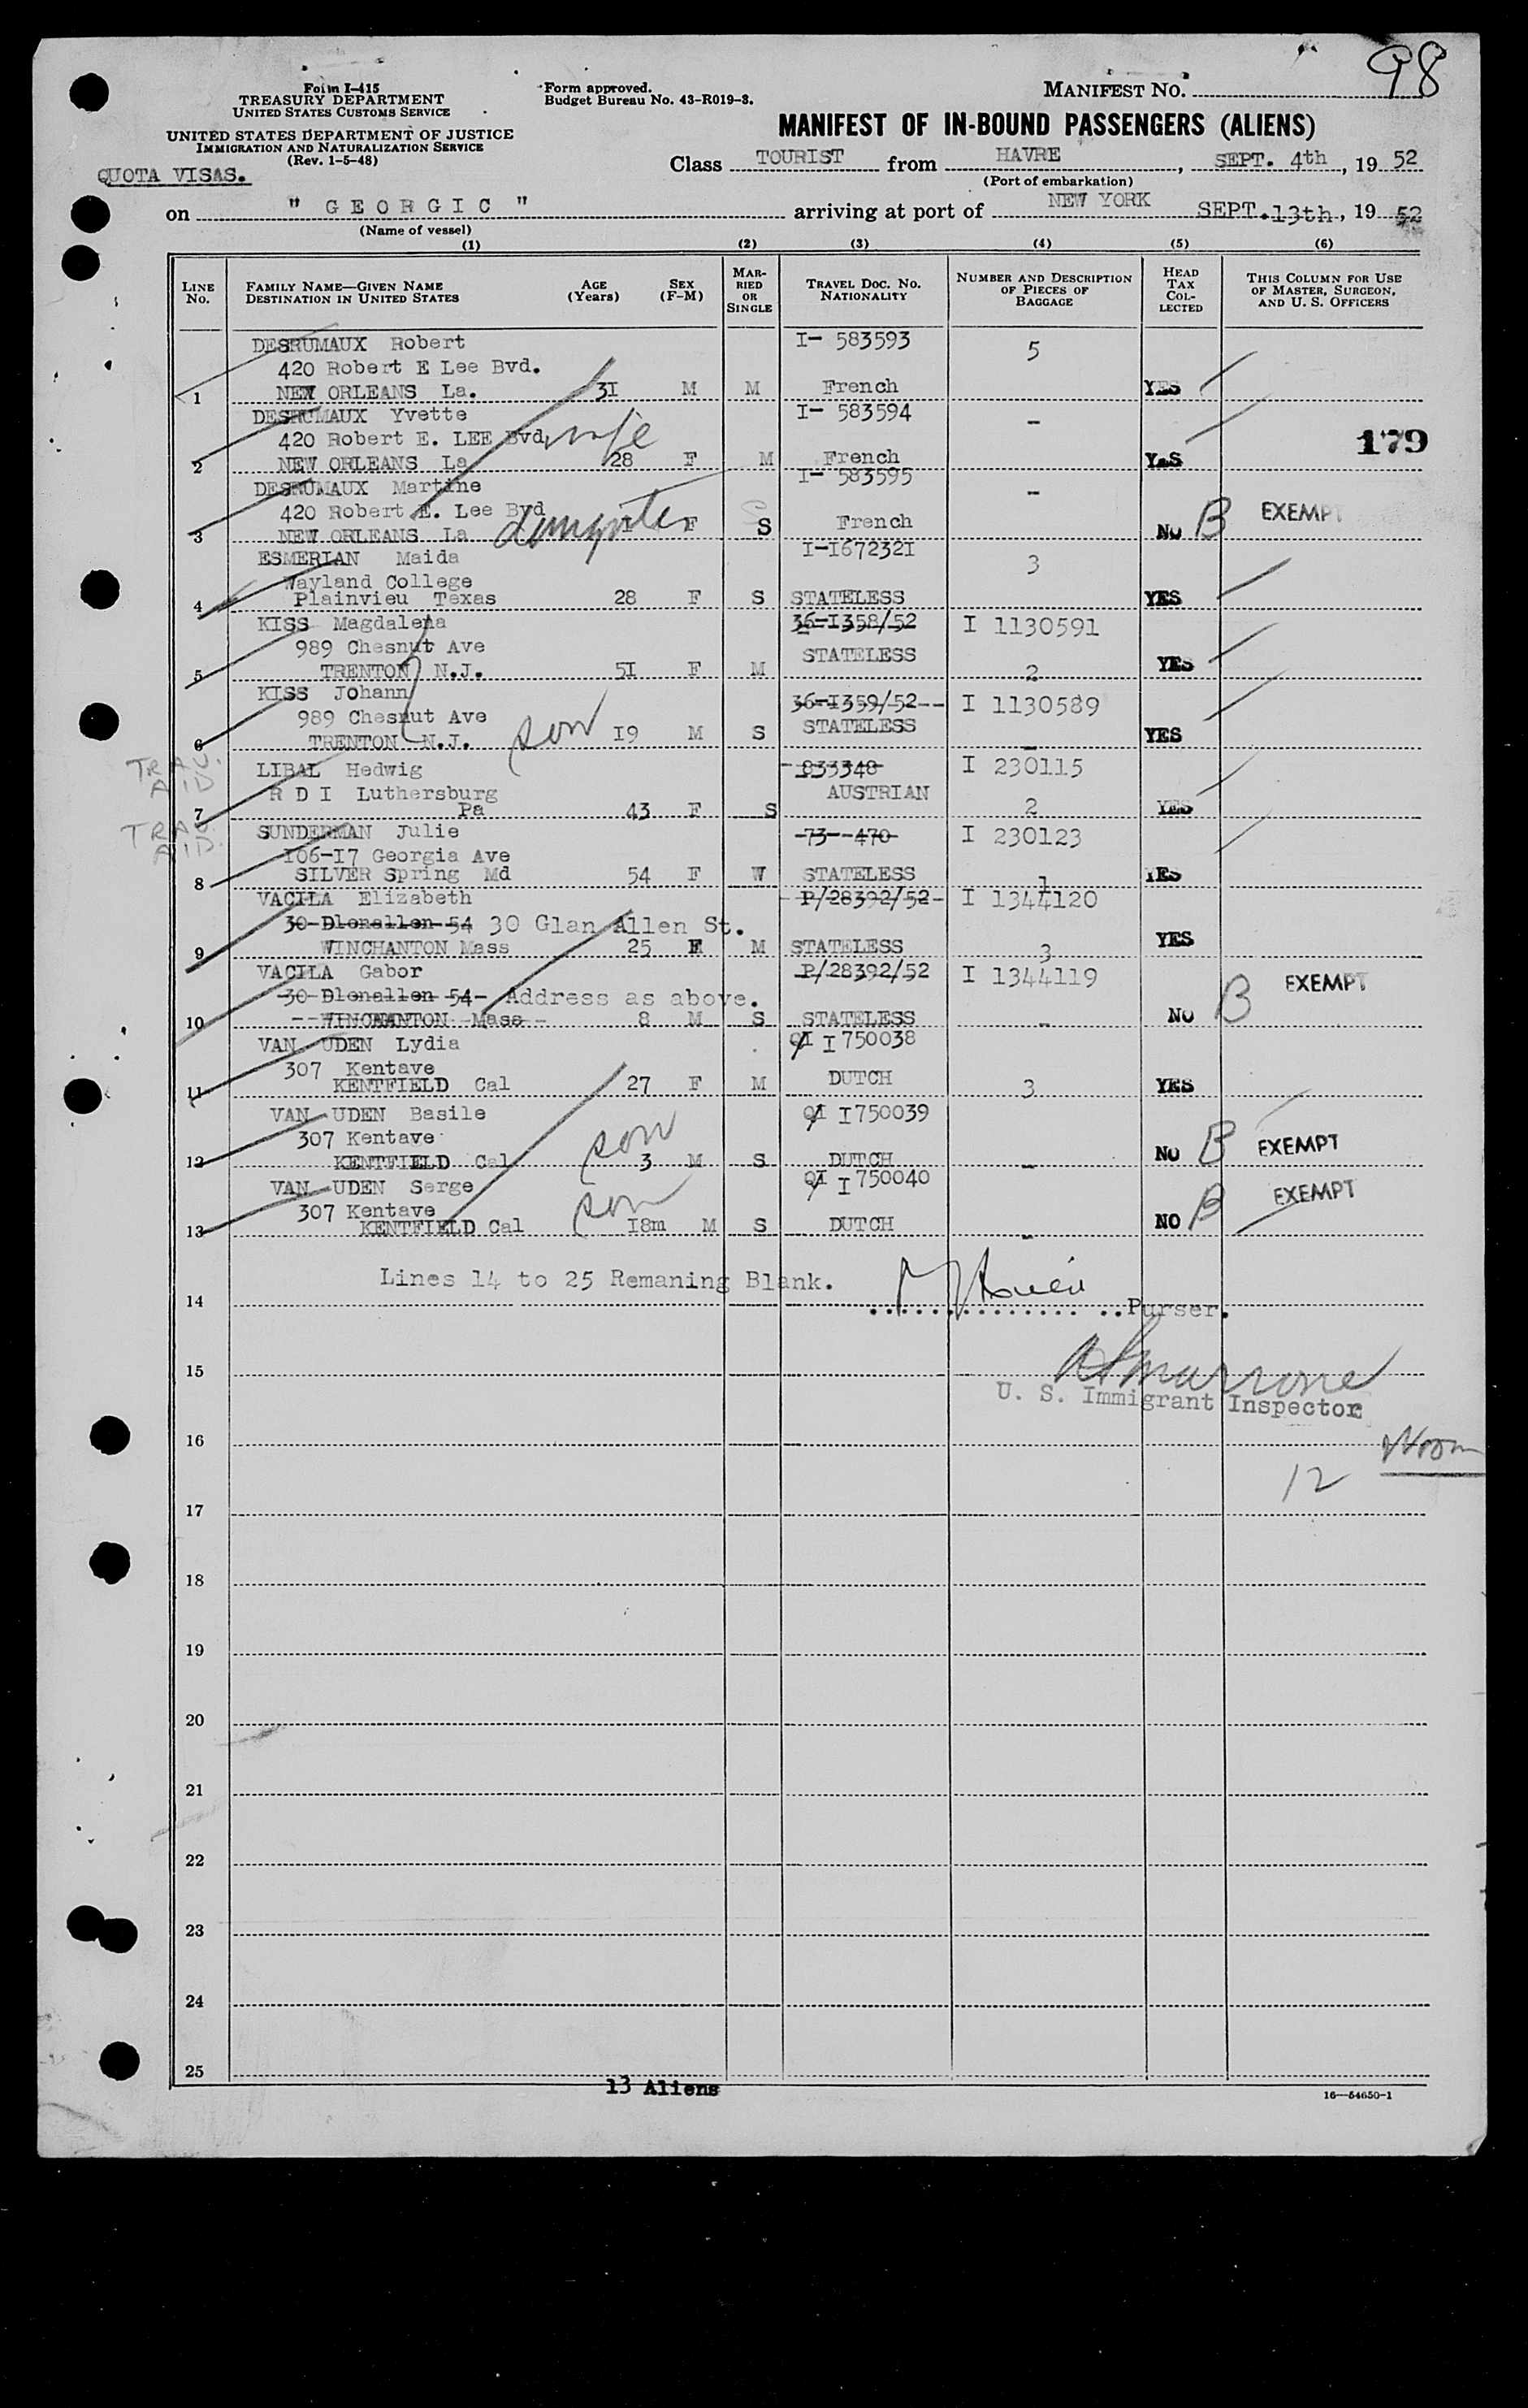 98
Form I-415
TREASURY DEPARTMENT
UNITED STATES CUSTOMS SERVICE
UNITED STATES DEPARTMENT OF JUSTICE
IMMIGRATION AND NATURALIZATION SERVICE
(Rev. 1-5-48)
QUOTA VISAS.
Form approved.
Budget Bureau No. 43-R019-3.
MANIFEST NO.
MANIFEST OF IN-BOUND PASSENGERS (ALIENS)
Class TOURIST from HAVRE, SEPT. 4th, 19 52
(Port of embarkation)
on " G E O R G I C " arriving at port of NEW YORK SEPT. 13th, 19 52
(Name of vessel)
(1) (2) (3) (4) (5) (6)
LINE No. FAMILY NAME—GIVEN NAME DESTINATION IN UNITED STATES AGE (Years) SEX (F-M) MARRIED OR SINGLE TRAVEL DOC. NO. NATIONALITY NUMBER AND DESCRIPTION OF PIECES OF BAGGAGE HEAD TAX COLLECTED THIS COLUMN FOR USE OF MASTER, SURGEON, AND U. S. OFFICERS
DESRUMAUX Robert I- 583593 5
420 Robert E Lee Bvd.
1 NEW ORLEANS La. 31 M M French YES
DESRUMAUX Yvette I- 583594 -
420 Robert E. LEE Bvd. wife 179
2 NEW ORLEANS La 28 F M French YES
DESRUMAUX Martine I- 583595 -
420 Robert E. Lee Bvd daughter
3 NEW ORLEANS La 1 F S French NO B EXEMPT
ESMERIAN Maida I-1672321 3
Wayland College
4 Plainvieu Texas 28 F S STATELESS YES
KISS Magdalena 36-1358/52 I 1130591
989 Chesnut Ave STATELESS
5 TRENTON N.J. 51 F M 2 YES
KISS Johann 36-1359/52-- I 1130589
989 Chesnut Ave son STATELESS
6 TRENTON N.J. 19 M S - YES
TRAV. AID.
LIBAL Hedwig 833348 I 230115
R D I Luthersburg AUSTRIAN
7 Pa 43 F S 2 YES
TRAV. AID.
SUNDERMAN Julie 73--470 I 230123
106-17 Georgia Ave
8 SILVER Spring Md 54 F W STATELESS 1 YES
VACILA Elizabeth P/28392/52 I 1344120
30 Dlenallen 54 30 Glan Allen St.
9 WINCHANTON Mass 25 F M STATELESS 3 YES
VACILA Gabor P/28392/52 I 1344119
30 Dlenallen 54- Address as above.
10 WINCHANTON Mass 8 M S STATELESS - NO B EXEMPT
VAN UDEN Lydia QI I 750038
307 Kentave
11 KENTFIELD Cal 27 F M DUTCH 3 YES
VAN UDEN Basile QI I750039
307 Kentave son
12 KENTFIELD Cal 3 M S DUTCH - NO B EXEMPT
VAN UDEN Serge QI I 750040
307 Kentave son
13 KENTFIELD Cal 18m M S DUTCH - NO B EXEMPT
Lines 14 to 25 Remaning Blank.
14 Purser.
15
U. S. Immigrant Inspector
16
12
17
18
19
20
21
22
23
24
25
13 Aliens
16—54650-1